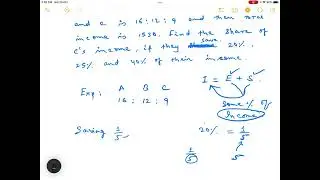 and c is 16 : 12 : 9 and their total
income is 1530. Find the share of
c's income, if they save 20%,
25% and 40% of their income.
I = E + S
Exp : A B C
16 : 12 : 9
Some % of
Income
Saving 1/5
20% = 1/5
1/5 5